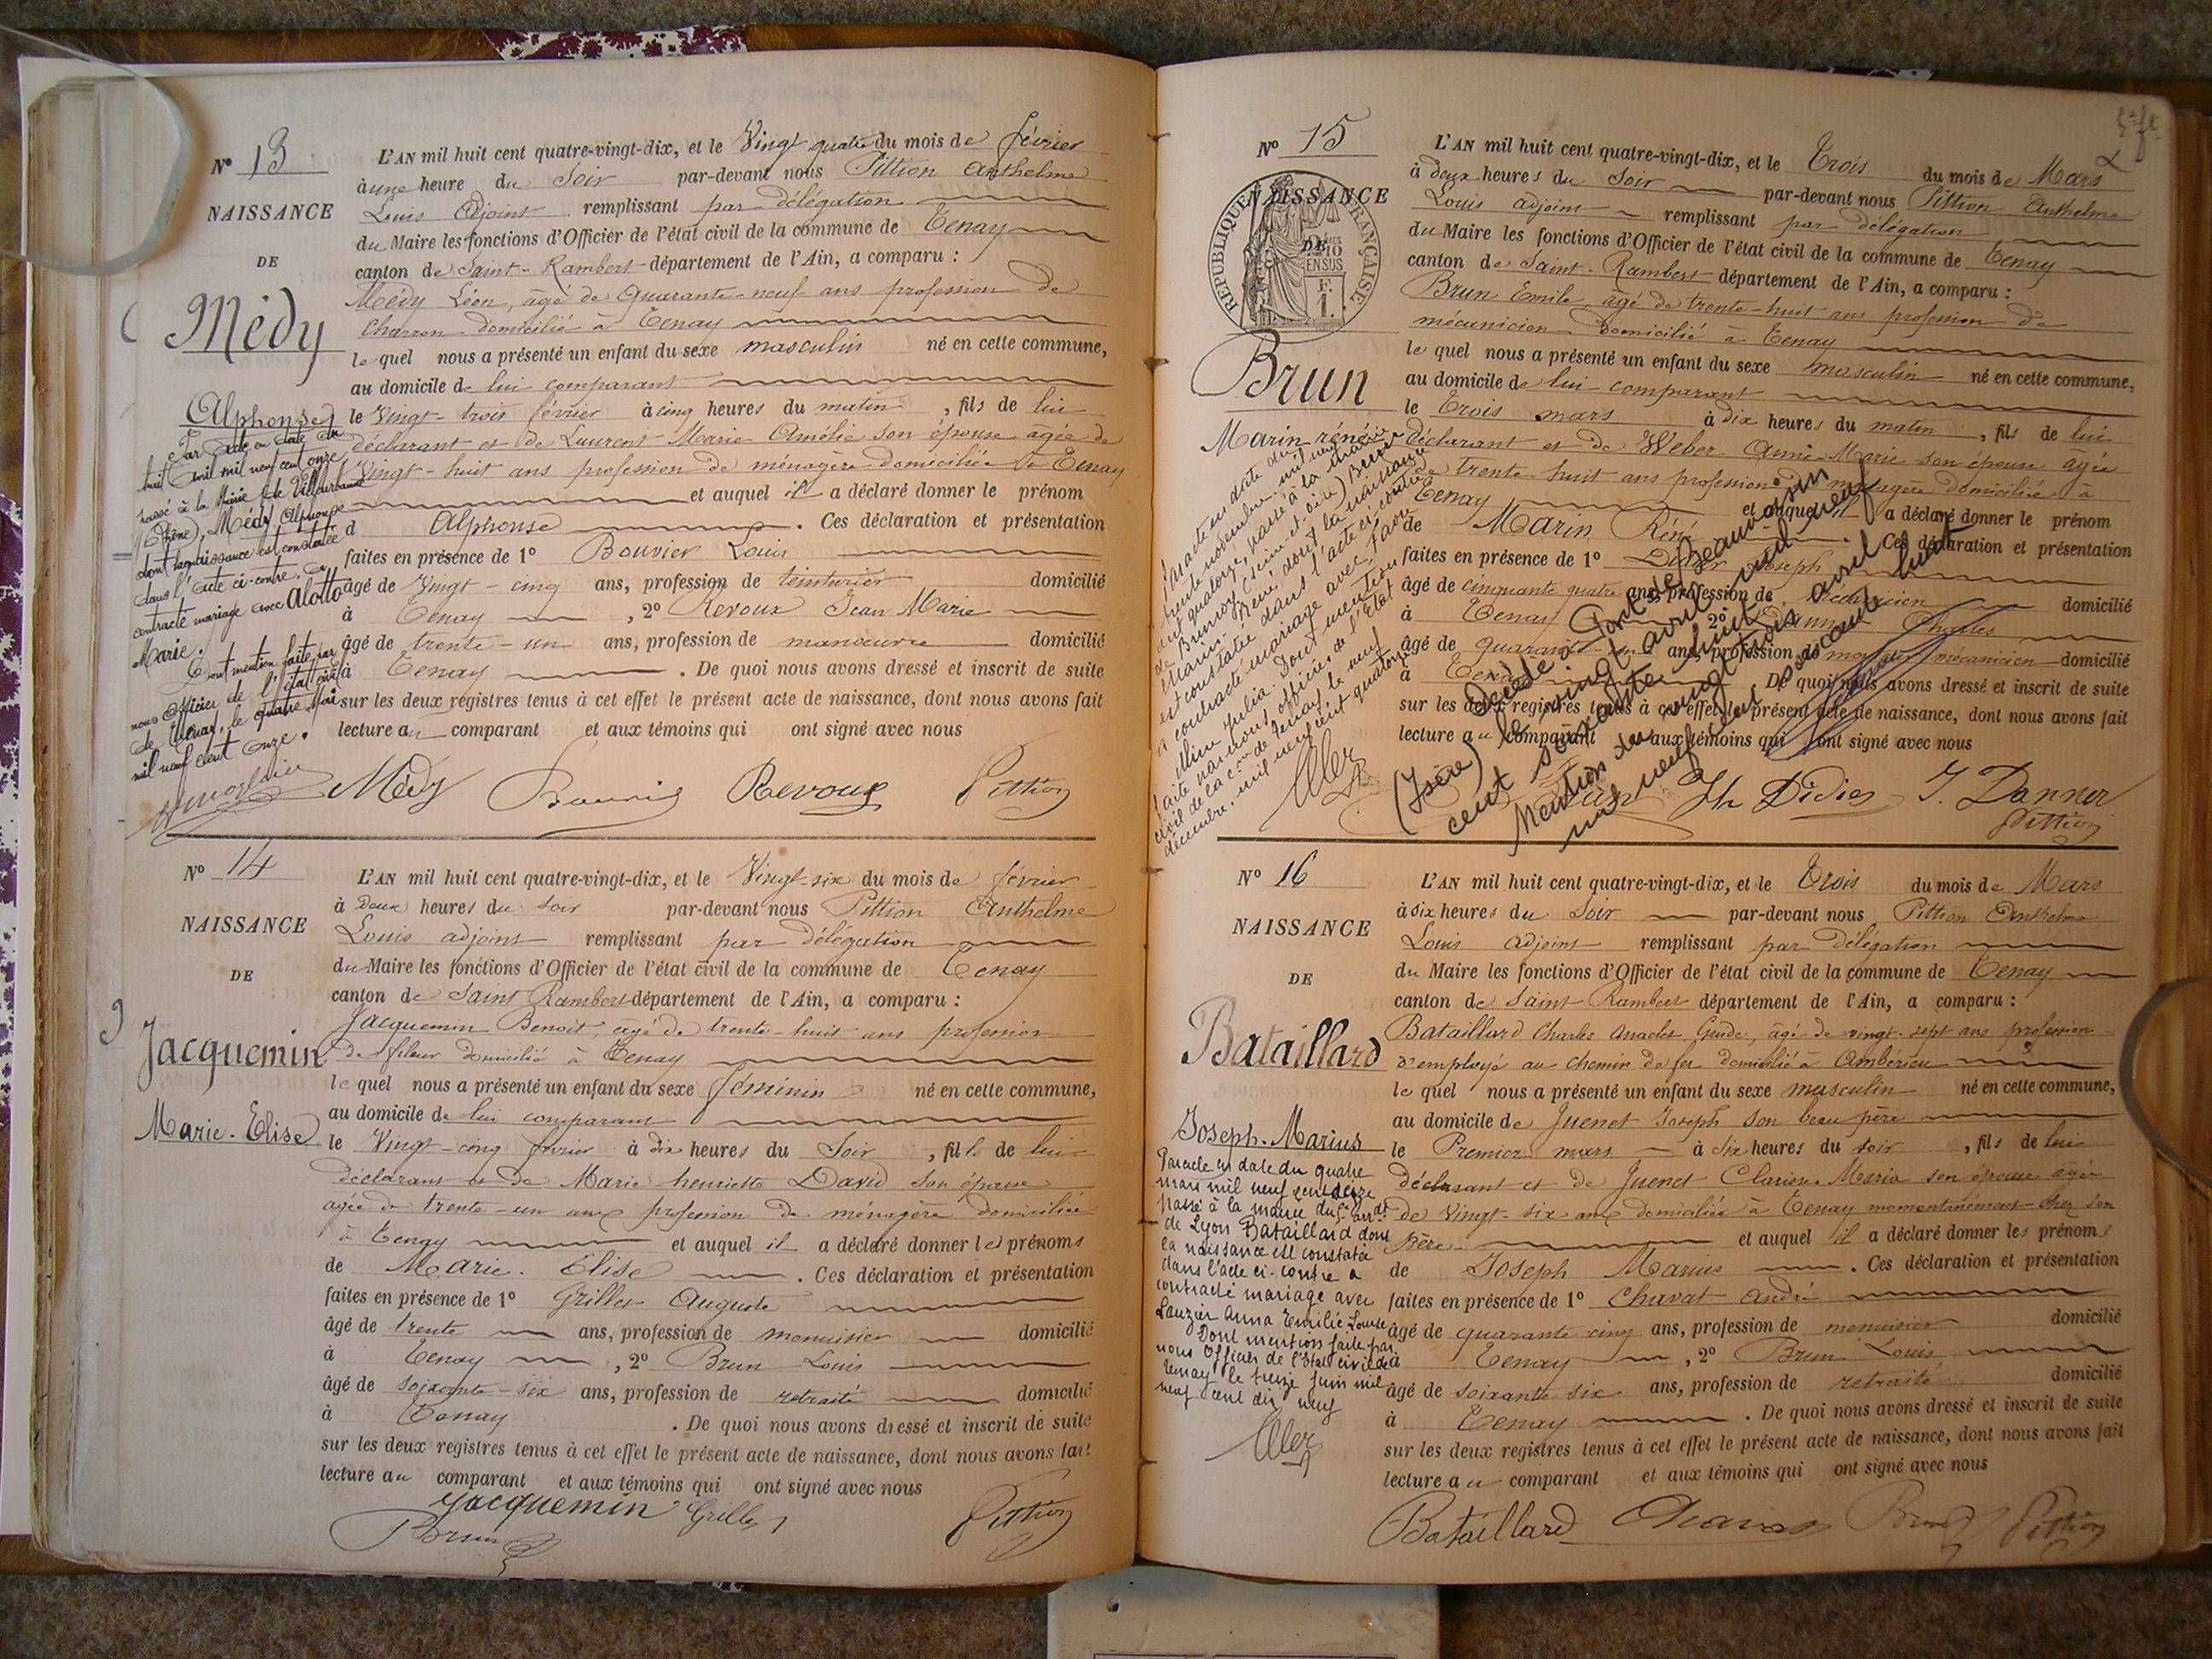 N° 13
NAISSANCE
DE
Médy
Alphonse
Par acte en date du
huit avril mil neuf cent onze
passé à la Mairie de Villeurbanne
(Rhône), Médy Alphonse
dont la naissance est constatée
dans l'acte ci-contre, a
contracté mariage avec Alotto
Marie.
Dont mention faite par
nous officier de l'état civil
de Tenay, le quatre Mai
mil neuf cent onze.
L'AN mil huit cent quatre-vingt-dix, et le Vingt quatre du mois de février
à une heure du Soir par-devant nous Pittion Anthelme
Louis Adjoint remplissant par délégation
du Maire les fonctions d'Officier de l'état civil de la commune de Tenay
canton de Saint-Rambert département de l'Ain, a comparu :
Médy Léon, âgé de quarante-neuf ans profession de
Charron domicilié à Tenay
le quel nous a présenté un enfant du sexe masculin né en cette commune,
au domicile de lui comparant
le Vingt-trois février à cinq heures du matin, fils de lui
déclarant et de Laurent Marie Amélie son épouse âgée de
Vingt-huit ans profession de ménagère domiciliée à Tenay
et auquel il a déclaré donner le prénom
d Alphonse. Ces déclaration et présentation
faites en présence de 1° Bouvier Louis
âgé de Vingt-cinq ans, profession de teinturier domicilié
à Tenay, 2° Revoux Jean Marie
âgé de trente-un ans, profession de manoeuvre domicilié
à Tenay. De quoi nous avons dressé et inscrit de suite
sur les deux registres tenus à cet effet le présent acte de naissance, dont nous avons fait
lecture au comparant et aux témoins qui ont signé avec nous
Médy Bouvier Revoux Pittion
N° 14
NAISSANCE
DE
Jacquemin
Marie-Elise
L'AN mil huit cent quatre-vingt-dix, et le Vingt-six du mois de février
à Deux heures du soir par-devant nous Pittion Anthelme
Louis adjoint remplissant par délégation
du Maire les fonctions d'Officier de l'état civil de la commune de Tenay
canton de Saint Rambert département de l'Ain, a comparu :
Jacquemin Benoit, âgé de trente-huit ans profession
de fileur domicilié à Tenay
le quel nous a présenté un enfant du sexe féminin né en cette commune,
au domicile de lui comparant
le Vingt-cinq février à dix heures du Soir, fille de lui
déclarant et de Marie henriette David son épouse
agée de trente-un ans profession de ménagère domiciliée
à Tenay et auquel il a déclaré donner les prénoms
de Marie-Elise. Ces déclaration et présentation
faites en présence de 1° Grillet Auguste
âgé de trente ans, profession de menuisier domicilié
à Tenay, 2° Brun Louis
âgé de soixante-six ans, profession de retraité domicilié
à Tenay. De quoi nous avons dressé et inscrit de suite
sur les deux registres tenus à cet effet le présent acte de naissance, dont nous avons fait
lecture au comparant et aux témoins qui ont signé avec nous
Jacquemin Grillet Pittion
Brun
N° 15
NAISSANCE
DE
RÉPUBLIQUE FRANÇAISE
EN SUS
Brun
Marin réné
Par acte en date du
trente novembre mil neuf
cent quatorze, passé à la mairie
de Brunoy (Seine-et-Oise) Brun
Marin-René dont la naissance
est constatée dans l'acte ci-contre
a contracté mariage avec
Julia. Dont mention
faite par nous, officier de l'Etat
civil de la cne de Tenay, le neuf
décembre mil neuf cent quatorze
L'AN mil huit cent quatre-vingt-dix, et le Trois du mois de Mars
à deux heures du soir par-devant nous Pittion Anthelme
Louis adjoint remplissant par délégation
du Maire les fonctions d'Officier de l'état civil de la commune de Tenay
canton de Saint-Rambert département de l'Ain, a comparu :
Brun Emile, âgé de trente-huit ans profession de
mécanicien domicilié à Tenay
le quel nous a présenté un enfant du sexe masculin né en cette commune,
au domicile de lui comparant
le Trois mars à dix heures du matin, fils de lui
déclarant et de Weber Anne-Marie son épouse âgée
de trente-huit ans profession de ménagère domiciliée à
Tenay et auquel il a déclaré donner le prénom
de Marin Réné. Ces déclaration et présentation
faites en présence de 1° Didier Joseph
âgé de cinquante quatre ans, profession de domicilié
à Tenay 2° Danner Charles
âgé de quarante-un ans, profession de mécanicien domicilié
à Tenay. De quoi nous avons dressé et inscrit de suite
sur les deux registres tenus à cet effet le présent acte de naissance, dont nous avons fait
lecture au comparant et aux témoins qui ont signé avec nous
Décédé à Pont de Beauvoisin
(Isère) le vingt avril mil neuf
cent soixante huit
Mention du vingt trois avril
mil neuf cent soixante huit
Brun Jh Didier J. Danner
Pittion
N° 16
NAISSANCE
DE
Bataillard
Joseph-Marius
Par acte en date du quatre
mars mil neuf cent seize
passé à la mairie du
de Lyon Bataillard dont
la naissance est constatée
dans l'acte ci-contre a
contracté mariage avec
Lauzier Anna Emilie Louise
Dont mention faite par
nous Officier de l'Etat civil de
Tenay le treize juin mil
neuf cent dix neuf
L'AN mil huit cent quatre-vingt-dix, et le Trois du mois de Mars
à six heures du Soir par-devant nous Pittion Anthelme
Louis adjoint remplissant par délégation
du Maire les fonctions d'Officier de l'état civil de la commune de Tenay
canton de Saint-Rambert département de l'Ain, a comparu :
Bataillard Charles Anaclet, âgé de vingt-sept ans profession
d'employé au chemin de fer domicilié à Ambérieu
le quel nous a présenté un enfant du sexe masculin né en cette commune,
au domicile de Juenet Joseph son beau père
le Premier mars à six heures du soir, fils de lui
déclarant et de Juenet Maria son épouse agée
de Vingt-six ans domiciliée à Tenay momentanément chez son
père et auquel il a déclaré donner les prénoms
de Joseph Marius. Ces déclaration et présentation
faites en présence de 1° Chavat André
âgé de quarante cinq ans, profession de menuisier domicilié
à Tenay, 2° Brun Louis
âgé de soixante six ans, profession de retraité domicilié
à Tenay. De quoi nous avons dressé et inscrit de suite
sur les deux registres tenus à cet effet le présent acte de naissance, dont nous avons fait
lecture au comparant et aux témoins qui ont signé avec nous
Bataillard Chavat Brun Pittion